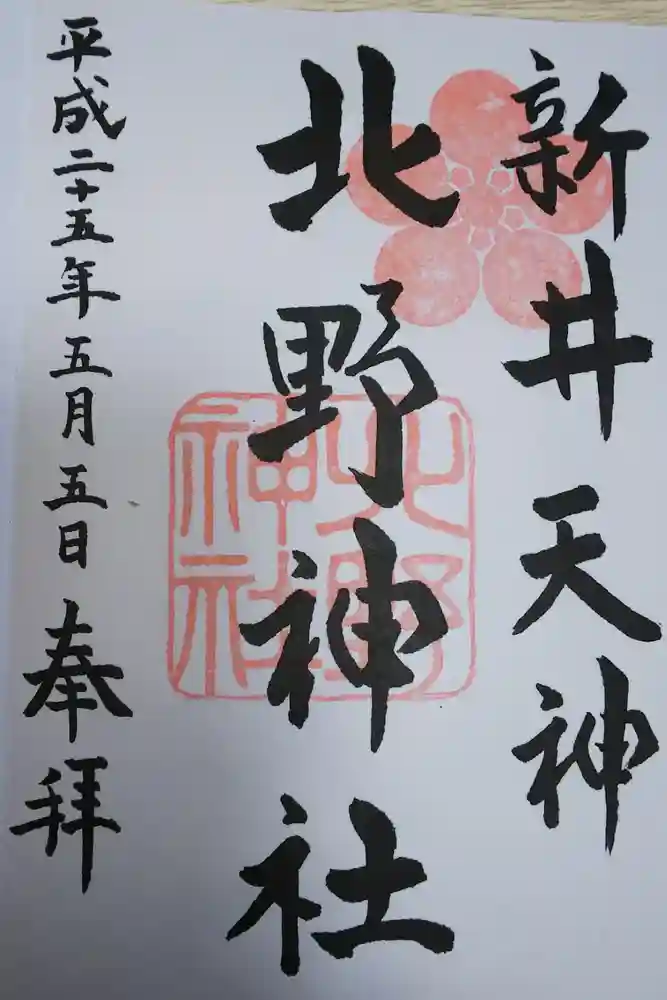 新井天神
北野神社
平成二十五年五月五日奉拝
北野神社